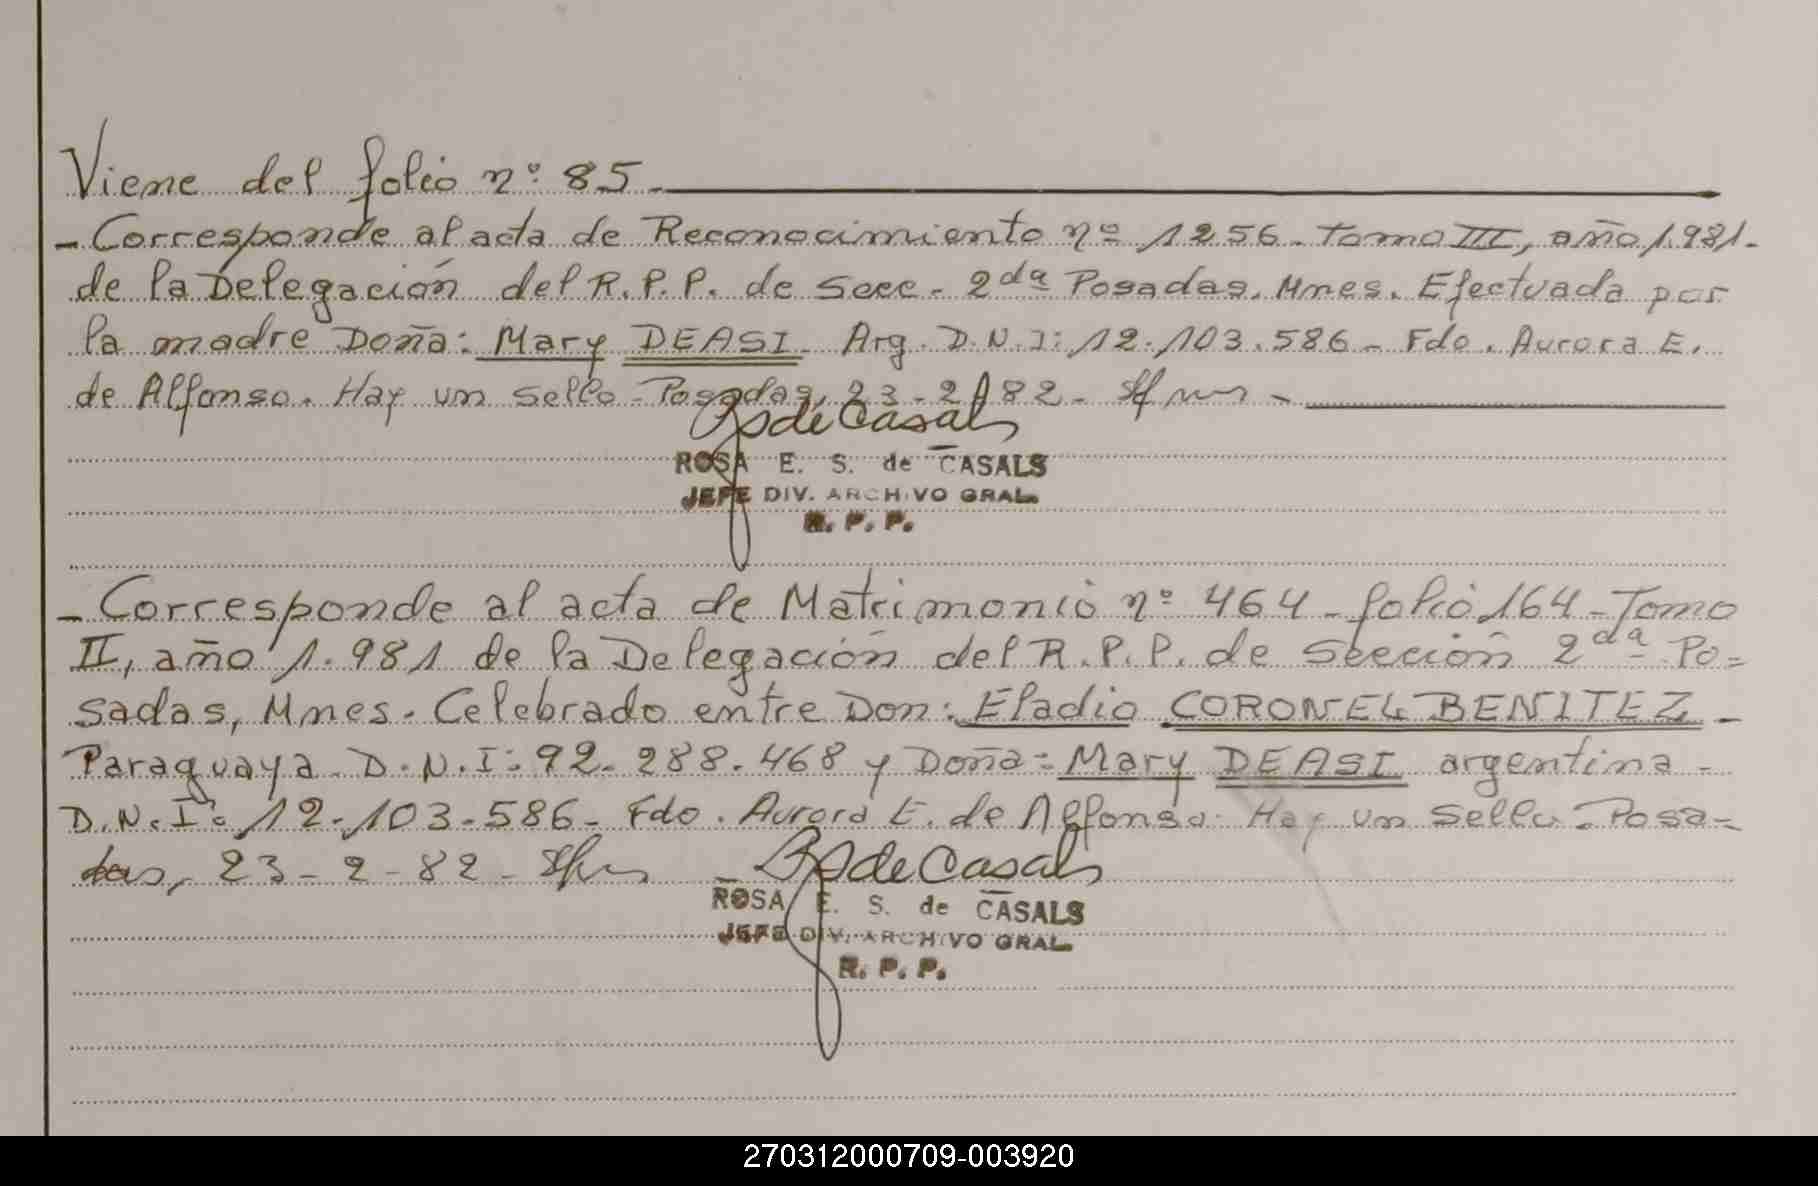 Viene del folio nº 85.
- Corresponde al acta de Reconocimiento nº 1256. Tomo III, año 1.981.
de la Delegación del R.P.P. de Secc. 2da Posadas. Mnes. Efectuada por
la madre Doña: Mary DEASI. Arg. D.N.I: 12.103.586 - Fdo. Aurora E.
de Alfonso. Hay un sello - Posadas, 23-2-82 -
ROSA E. S. de CASALS
JEFE DIV. ARCHIVO GRAL.
R. P. P.
- Corresponde al acta de Matrimonio nº 464 - folio 164 - Tomo
II, año 1.981 de la Delegación del R.P.P. de Sección 2da Po=
sadas, Mnes. Celebrado entre Don: Eladio CORONEL BENITEZ -
Paraguaya. D.N.I: 92.288.468 y Doña: Mary DEASI argentina -
D.N.I: 12.103.586 - Fdo. Aurora E. de Alfonso. Hay un sello. Posa-
das, 23-2-82 -
ROSA E. S. de CASALS
JEFE DIV. ARCHIVO GRAL.
R. P. P.
270312000709-003920